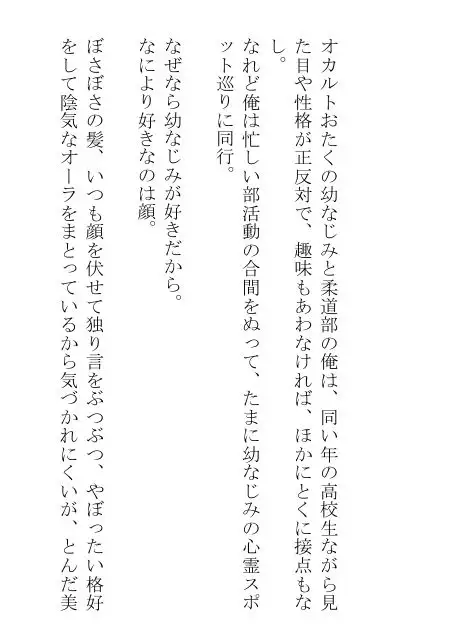 オカルトおたくの幼なじみと柔道部の俺は、同い年の高校生ながら見
た目や性格が正反対で、趣味もあわなければ、ほかにとくに接点もな
し。
なれど俺は忙しい部活動の合間をぬって、たまに幼なじみの心霊スポ
ット巡りに同行。
なぜなら幼なじみが好きだから。
なにより好きなのは顔。
ぼさぼさの髪、いつも顔を伏せて独り言をぶつぶつ、やぼったい格好
をして陰気なオーラをまとっているから気づかれにくいが、とんだ美